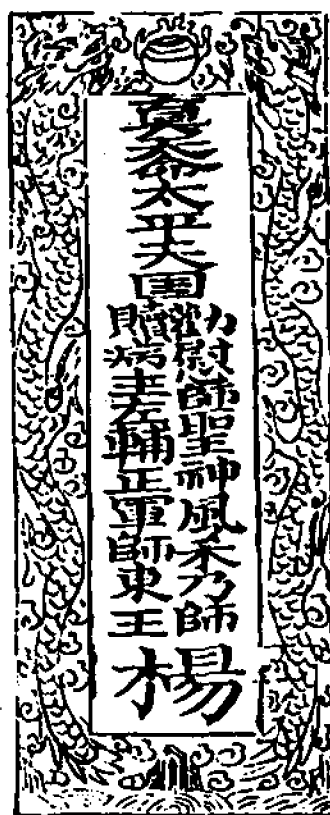 真命太平天囯
勸慰師聖神風禾乃師
贖病主左輔正軍師東王
楊